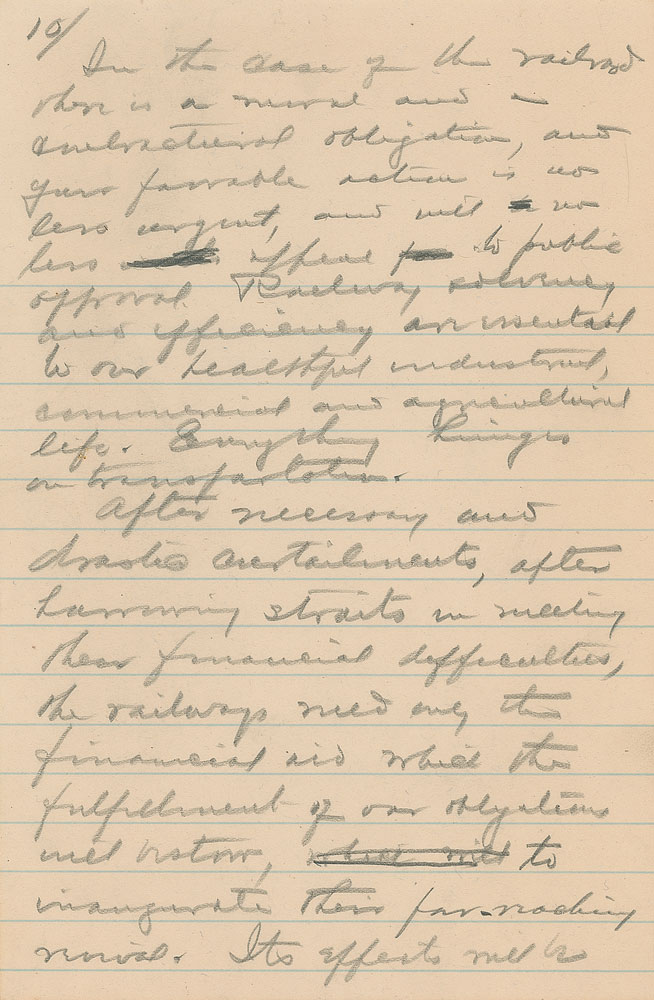 10/
In the case of the railroad
there is a moral and a
contractural obligation, and
your favorable action is no
less urgent, and will no
less appeal to public
approval. Railway solvency
and efficiency are essential
to our healthful industrial,
commercial and agricultural
life. Everything hinges
on transportation.
After necessary and
drastic curtailments, after
harrowing straits in meeting
their financial difficulties,
the railways need only the
financial aid which the
fulfillment of our obligations
will bestow, to
inaugurate their far-reaching
revival. Its effects will be